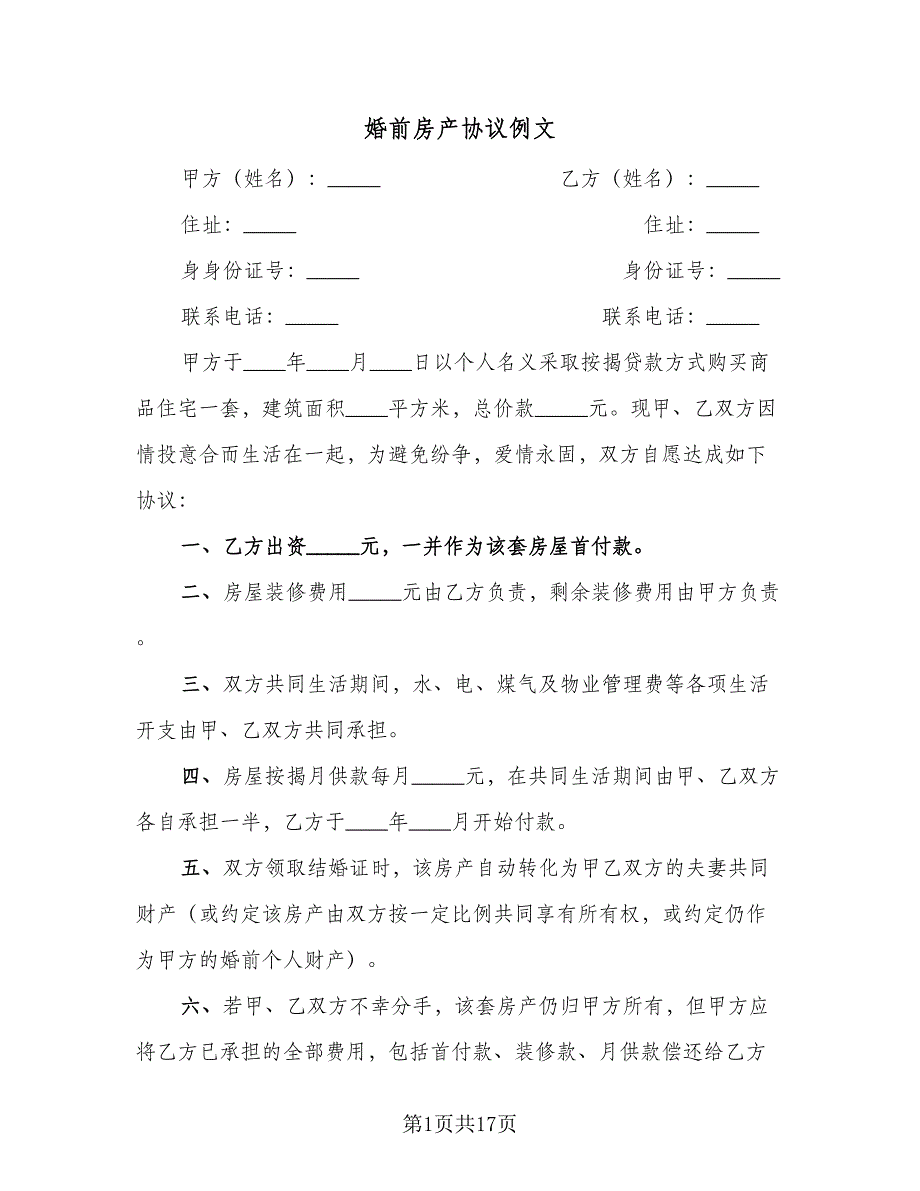 婚前房产协议例文
甲方（姓名）：_____ 乙方（姓名）：_____
住址：_____ 住址：_____
身身份证号：_____ 身份证号：_____
联系电话：_____ 联系电话：_____
甲方于____年____月____日以个人名义采取按揭贷款方式购买商
品住宅一套，建筑面积____平方米，总价款_____元。现甲、乙双方因
情投意合而生活在一起，为避免纷争，爱情永固，双方自愿达成如下
协议：
一、乙方出资_____元，一并作为该套房屋首付款。
二、房屋装修费用_____元由乙方负责，剩余装修费用由甲方负责
。
三、双方共同生活期间，水、电、煤气及物业管理费等各项生活
开支由甲、乙双方共同承担。
四、房屋按揭月供款每月_____元，在共同生活期间由甲、乙双方
各自承担一半，乙方于____年____月开始付款。
五、双方领取结婚证时，该房产自动转化为甲乙双方的夫妻共同
财产（或约定该房产由双方按一定比例共同享有所有权，或约定仍作
为甲方的婚前个人财产）。
六、若甲、乙双方不幸分手，该套房产仍归甲方所有，但甲方应
将乙方已承担的全部费用，包括首付款、装修款、月供款偿还给乙方
第1页共17页